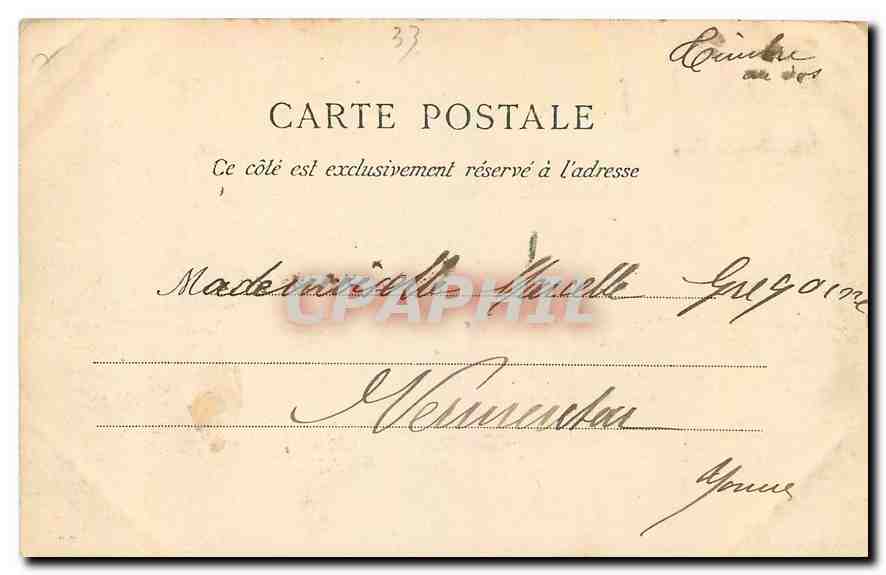 33
Timbre
au dos
CARTE POSTALE
Ce côté est exclusivement réservé à l'adresse
Mademoiselle Marcelle Gregoire
CPAPHIL
Vermenton
Yonne